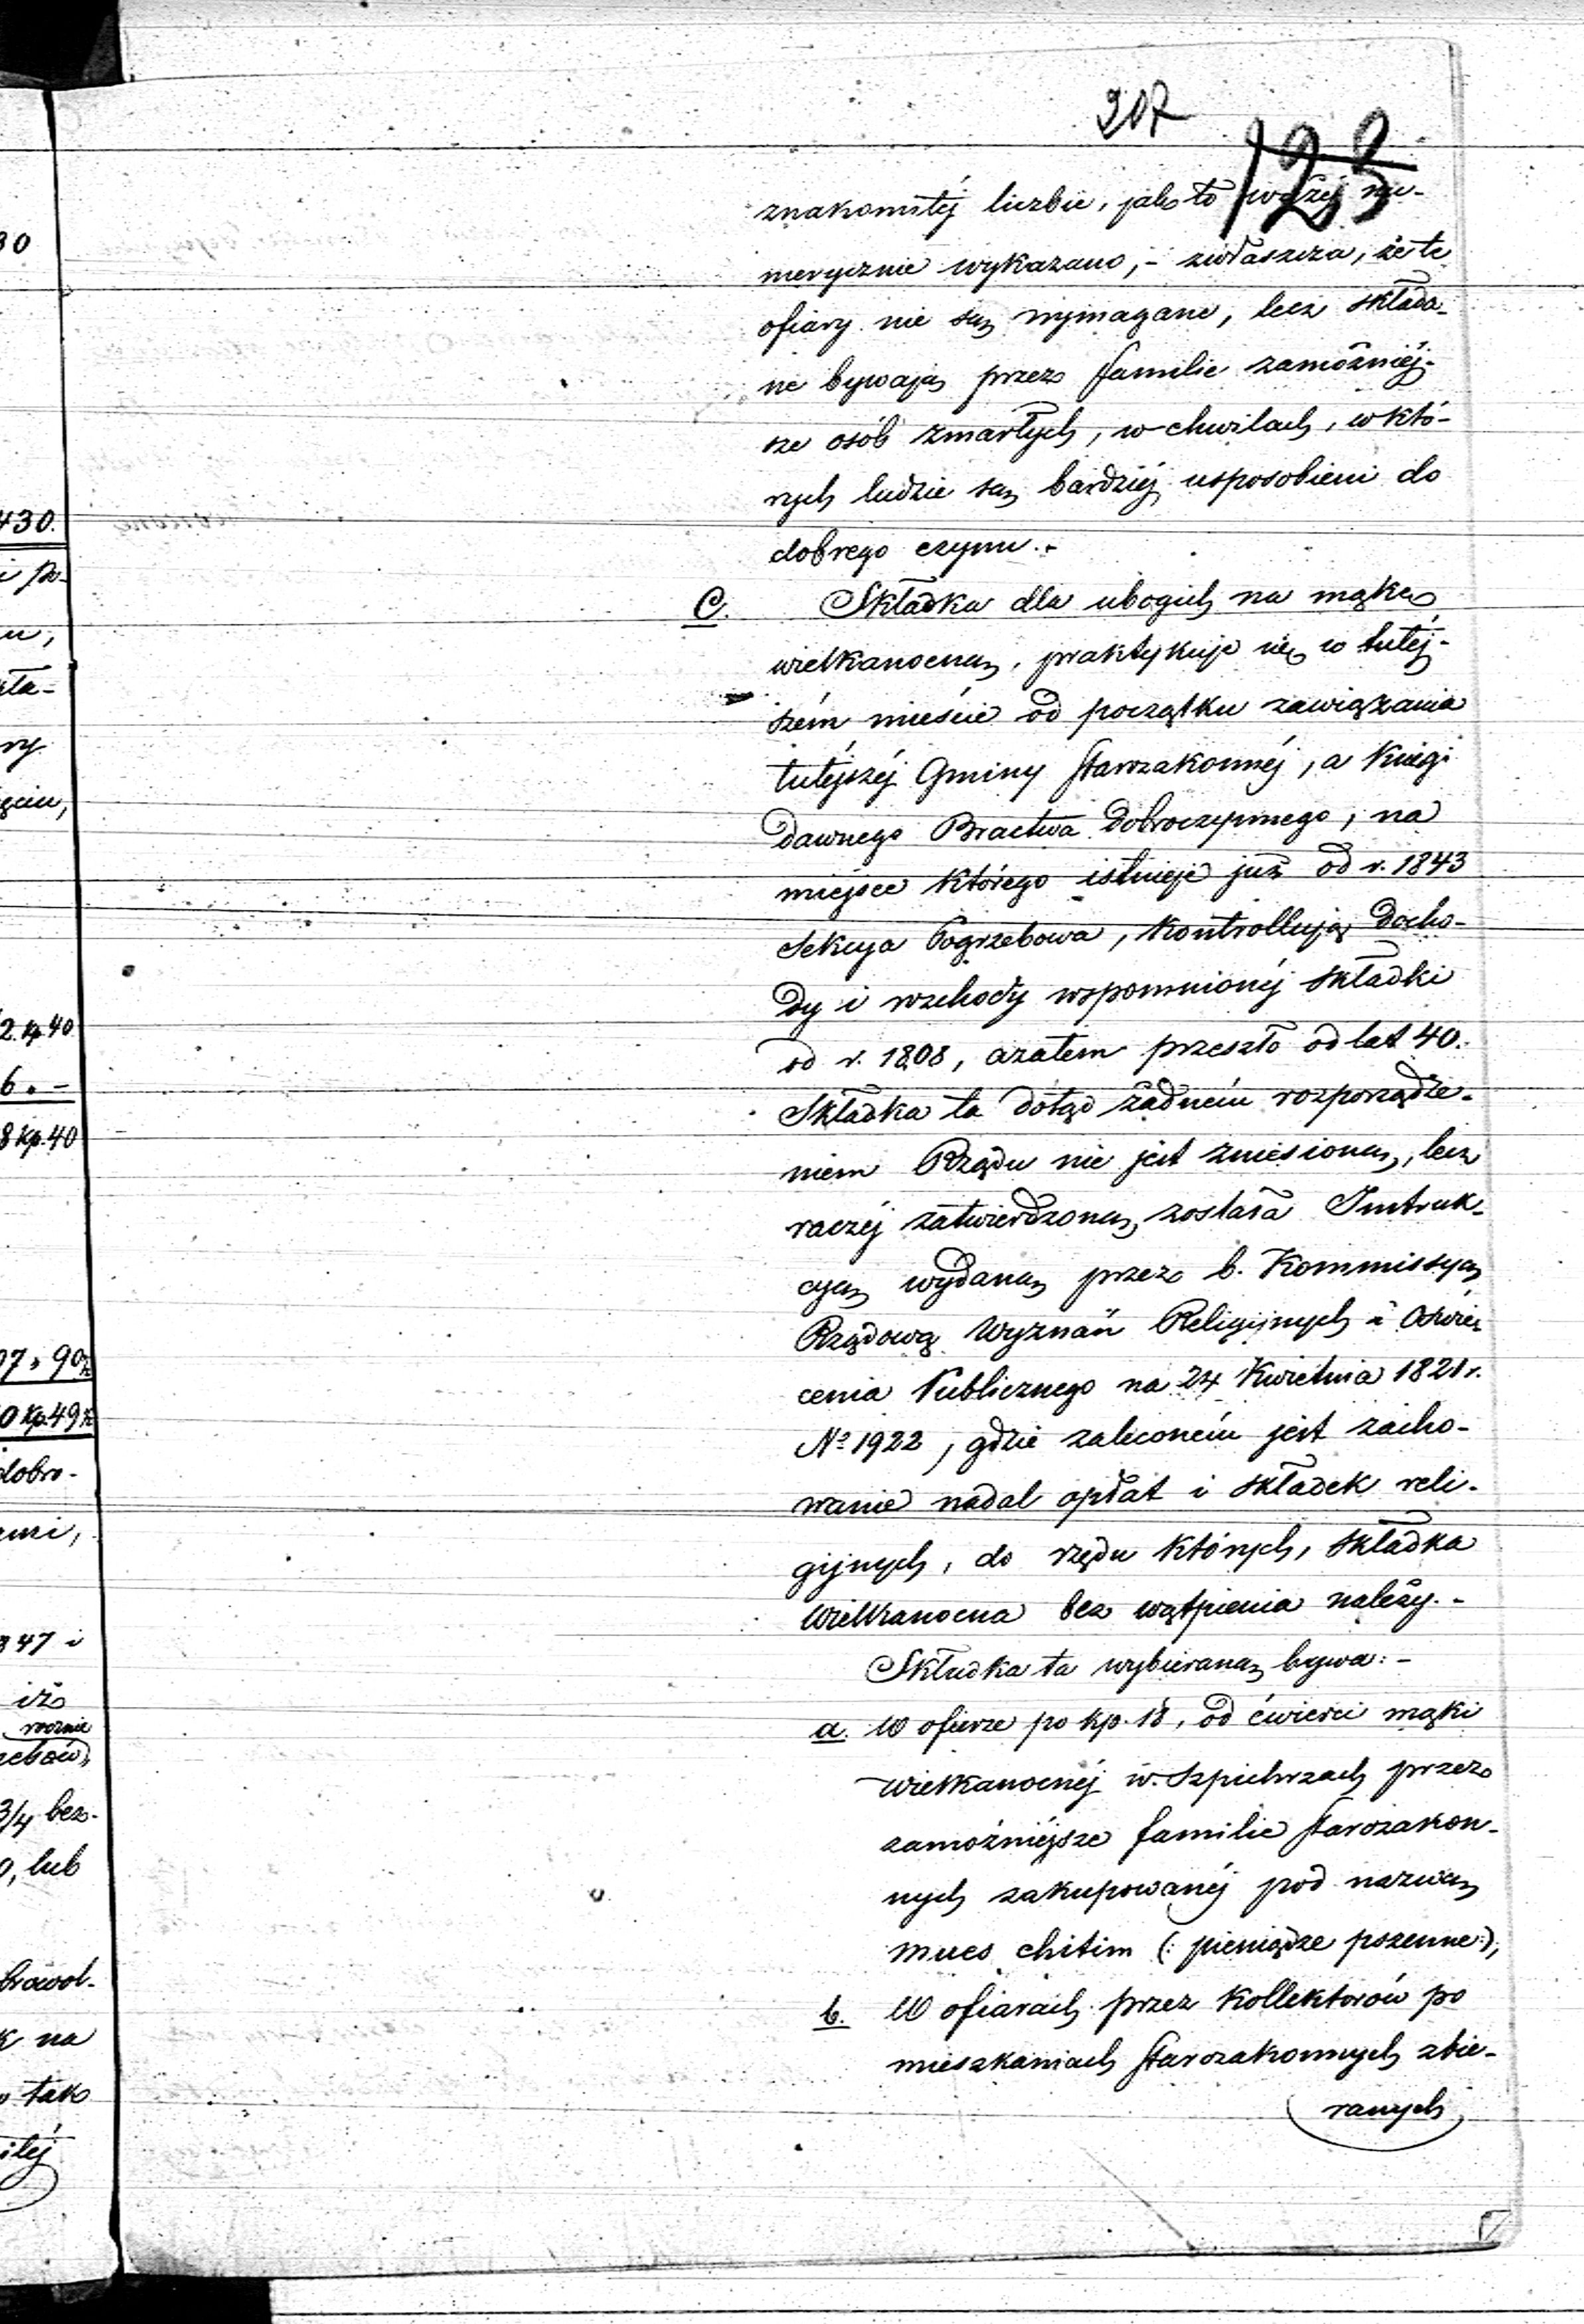 207
123
znakomitéj liczbie, jak to wyżéj nu-
merycznie wykazano, - zwłaszcza, że te
ofiary nie są wymagane, lecz składa-
ne bywają przez familie zamożniéj-
sze osób zmarłych, w chwilach, w któ-
rych ludzie są bardziéj usposobieni do
dobrego czynu. -
C. Składka dla ubogich na mąkę
wielkanocną, praktykuje się w tutéj-
szém mieście od początku zawiązania
tutéjszéj Gminy Starozakonnéj, a Księgi
dawnego Bractwa dobroczynnego, na
miejsce którego istnieje już od r. 1843
Sekcya Pogrzebowa, kontrollują docho-
dy i rozchody wspomnionéj składki
od r. 1808, azatem przeszło od lat 40.
Składka ta dotąd żadném rozporządze-
niem Rządu nie jest zniesioną, lecz
raczéj zatwierdzoną została Instruk-
cyą wydaną przez b. Kommissyą
Rządową Wyznań Religijnych i Oświe
cenia Publicznego na 24 Kwietnia 1821 r.
No 1922, gdzie zaleconém jest zacho-
wanie nadal opłat i składek reli-
gijnych, do rzędu których, składka
Wielkanocna bez wątpienia należy. -
Składka ta wybieraną bywa: -
a. W ofierze po kp. 18, od ćwierci mąki
wielkanocnéj w Szpichrzach przez
zamożniéjsze familie starozakon-
nych zakupowanéj pod nazwą
mues chitim (: pieniądze pszenne:),
b. W ofiarach przez Kollektorów po
mieszkaniach starozakonnych zbie-
ranych
30
430.
i po-
ła-
ry
2. kp 40
6. -
8 kp. 40
07 „ 90
0 kp. 49
dobro-
347 i
iż
rocznie
3/4 bez-
o, lub
browol-
k na
tak